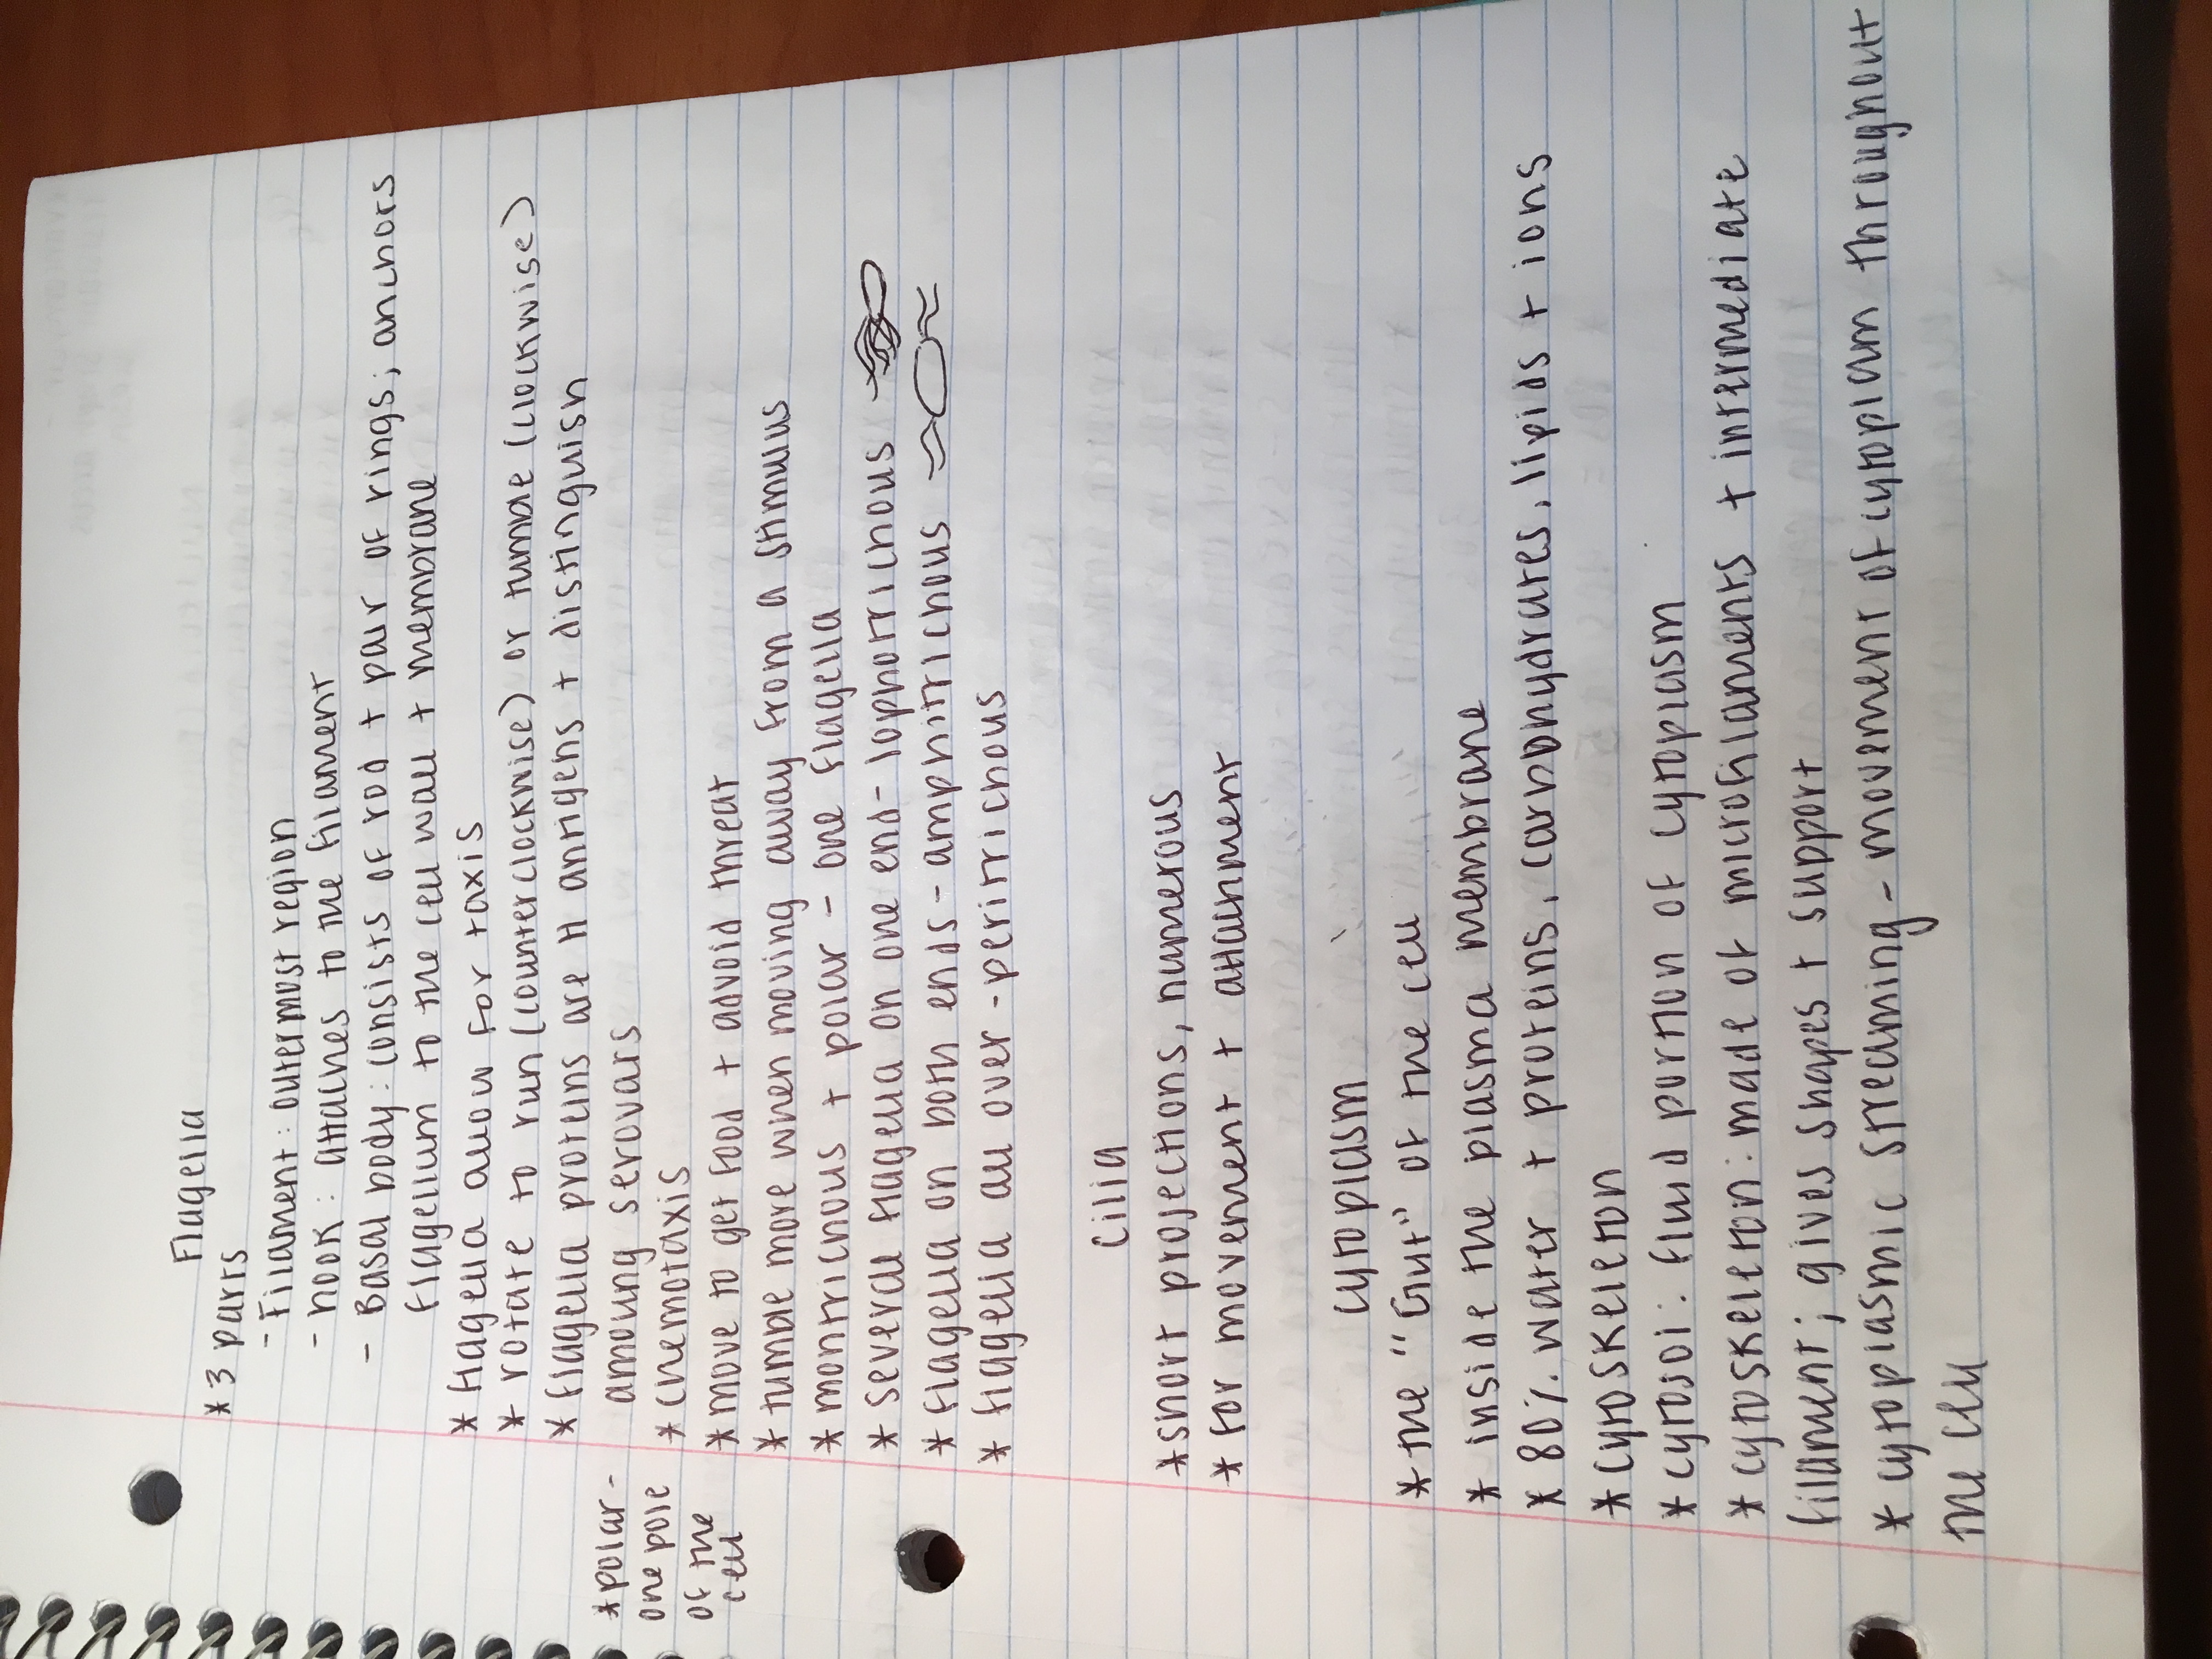 Flagella
* 3 parts
- Filament: outermost region
- hook: attaches to the filament
- Basal body: consists of rod + pair of rings; anchors
flagellum to the cell wall + membrane
* flagella allow for taxis
* rotate to run (counterclockwise) or tumble (clockwise)
* flagella proteins are H antigens + distinguish
among serovars
* chemotaxis
* move to get food + advoid threat
* tumble more when moving away from a stimulus
* montrichous + polar - one flagella
* several flagella on one end - lophotrichous
* flagella on both ends - amphitrichous
* flagella all over - peritrichous
* polar -
one pole
of the
cell
Cilia
* short projections, numerous
* for movement + attachment
cytoplasm
* the "Gut" of the cell
* inside the plasma membrane
* 80% water + proteins, carbohydrates, lipids + ions
* cytoskeleton
* cytosol: fluid portion of cytoplasm
* cytoskeleton: made of microfilaments + intermediate
filament; gives shapes + support
* cytoplasmic streaming - movement of cytoplam throughout
the cell